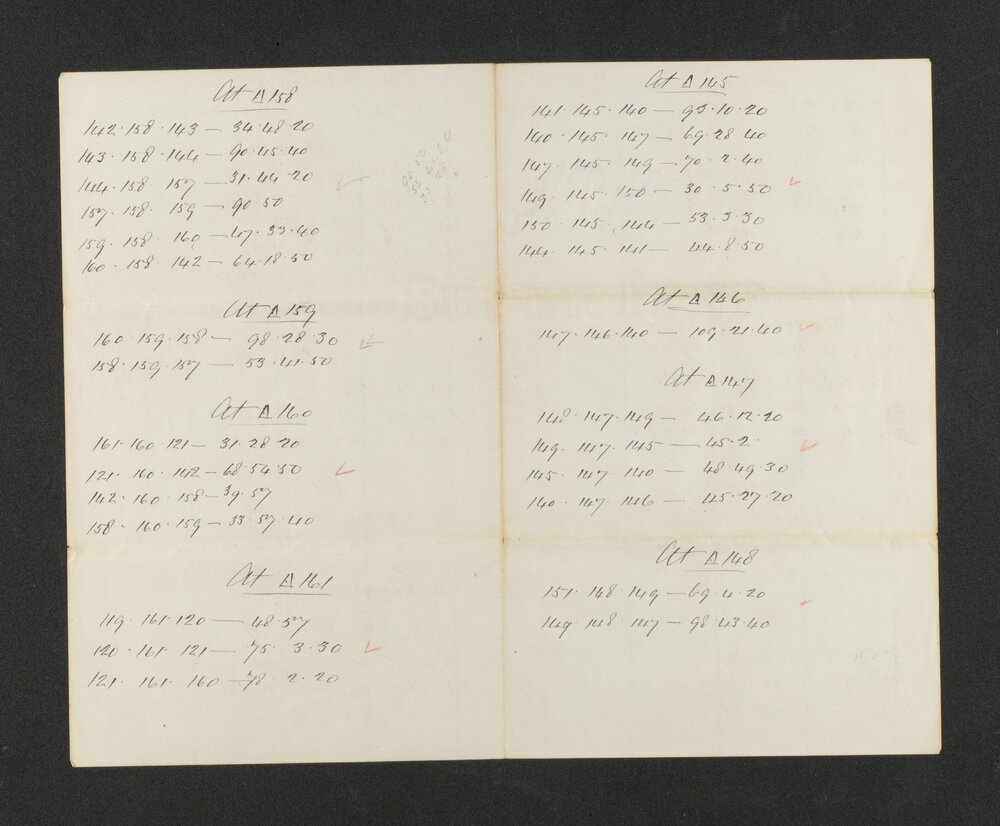 At Δ 158
142 · 158 · 143 — 34 · 48 · 20
143 · 158 · 144 — 90 · 45 · 40
144 · 158 · 157 — 31 · 44 · 20
157 · 158 · 159 — 90 · 50
159 · 158 · 160 — 47 · 33 · 40
160 · 158 · 142 — 64 · 18 · 50
At Δ 159
160 · 159 · 158 — 98 · 28 · 30
158 · 159 · 157 — 53 · 41 · 50
At Δ 160
161 · 160 · 121 — 31 · 28 · 20
121 · 160 · 142 — 68 · 54 · 50
142 · 160 · 158 — 39 · 57
158 · 160 · 159 — 33 · 57 · 40
At Δ 161
119 · 161 · 120 — 48 · 57
120 · 161 · 121 — 75 · 3 · 30
121 · 161 · 160 — 78 · 2 · 20
At Δ 145
141 · 145 · 140 — 93 · 10 · 20
140 · 145 · 147 — 69 · 28 · 40
147 · 145 · 149 — 70 · 2 · 40
149 · 145 · 150 — 30 · 5 · 50
150 · 145 · 144 — 53 · 3 · 30
144 · 145 · 141 — 44 · 8 · 50
At Δ 146
147 · 146 · 140 — 109 · 21 · 40
At Δ 147
148 · 147 · 149 — 46 · 12 · 20
149 · 147 · 145 — 45 · 2 ·
145 · 147 · 140 — 48 · 49 · 30
140 · 147 · 146 — 45 · 27 · 20
At Δ 148
151 · 148 · 149 — 69 · 4 · 20
149 · 148 · 147 — 98 · 43 · 40